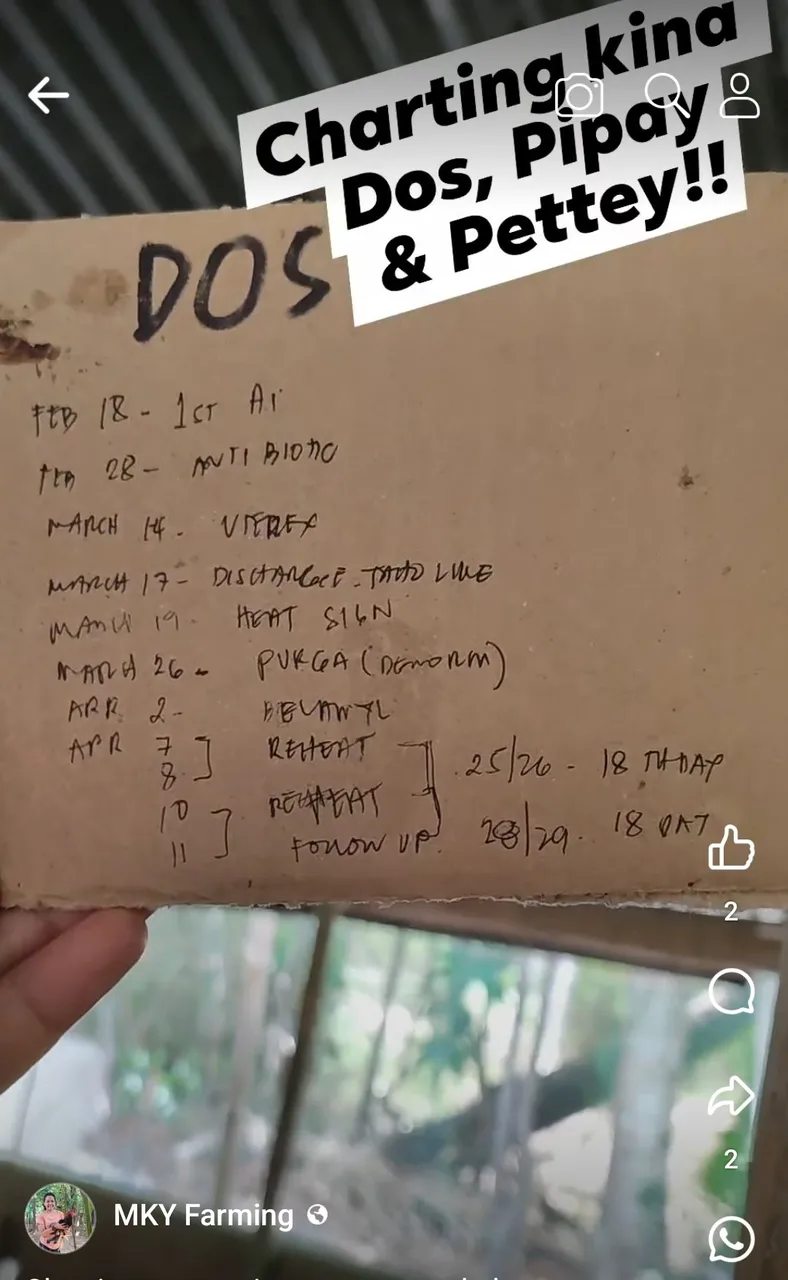 Charting kina
Dos, Pipay
& Pettey!!
DOS
FEB 18 - 1ST AI
FEB 28 - ANTI BIOTIC
MARCH 14 - VITEREX
MARCH 17 - DISCHARGE -
MARCH 19 - HEAT SIGN
MARCH 26 - PURGA (DEWORM)
APR 2 -
APR 7 REHEAT
8 25/26 - 18 TH DAY
10 REHEAT
11 FOLLOW UP. 28/29 - 18 DAY
2
2
MKY Farming